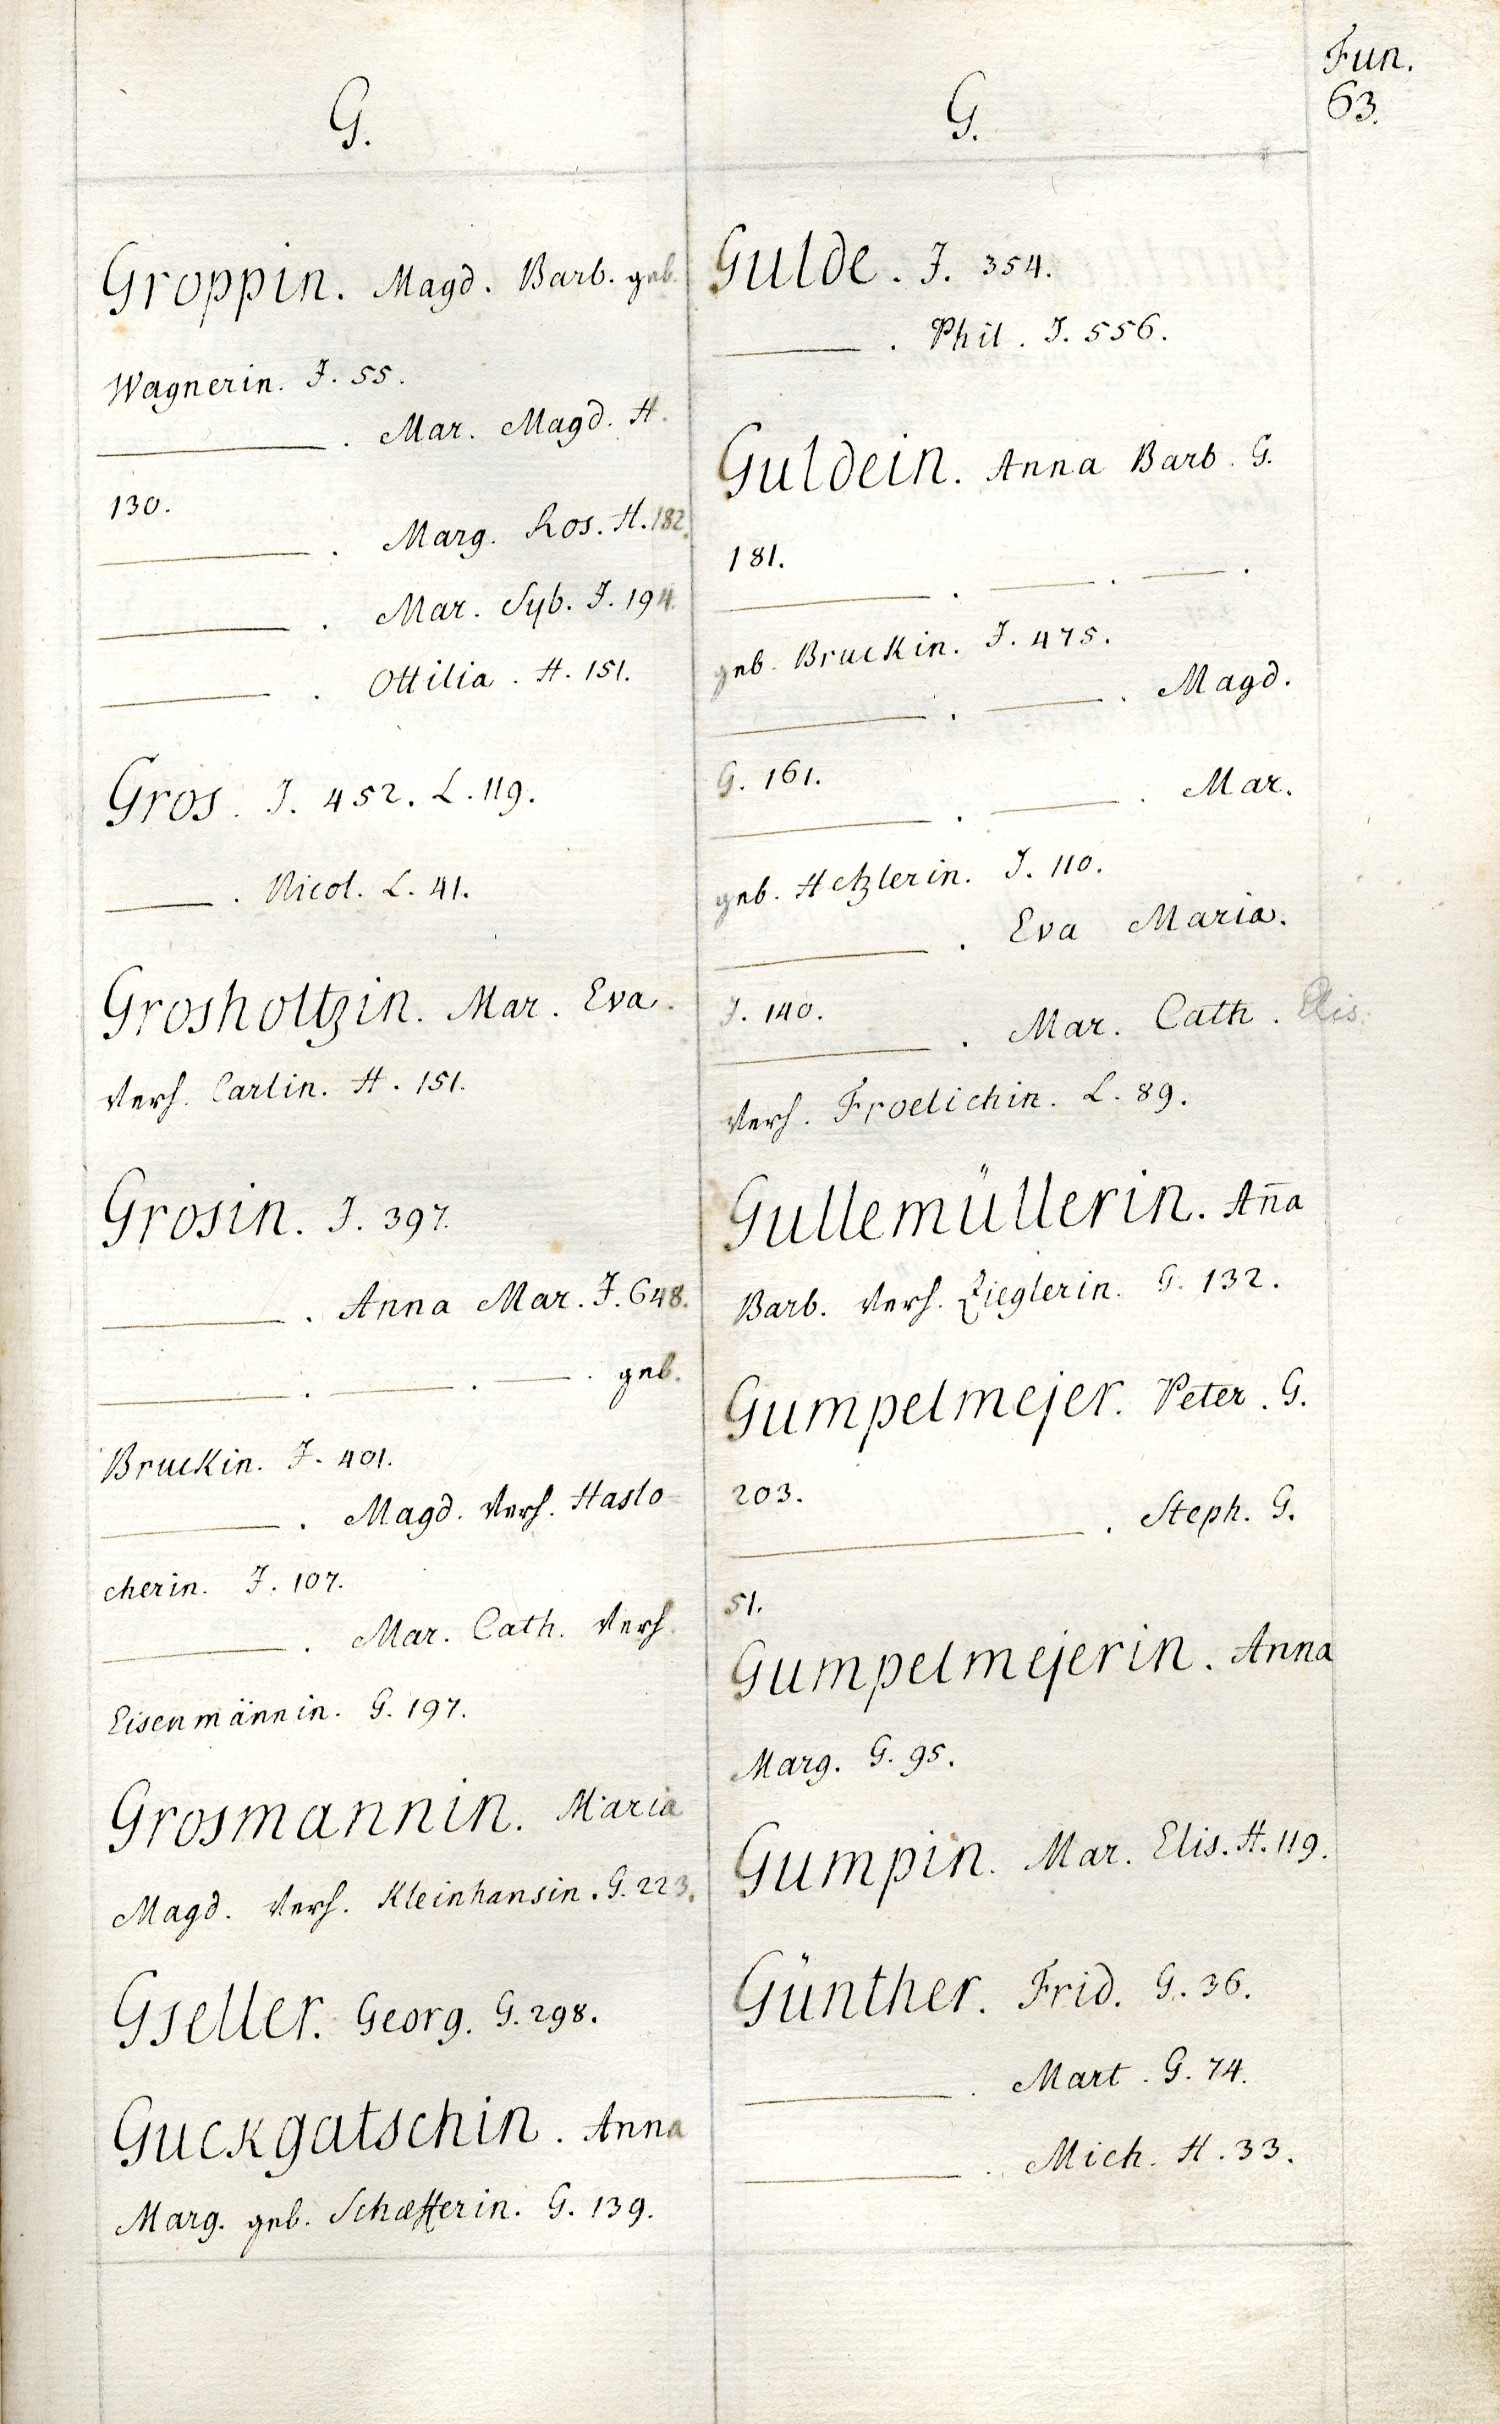 Fun.
63.
G.
Groppin. Magd. Barb. geb.
Wagnerin. J. 55.
———. Mar. Magd. H.
130.
———. Marg. Ros. H. 182.
———. Mar. Syb. J. 194.
———. Ottilia. H. 151.
Gros. J. 452. L. 119.
———. Nicol. L. 41.
Grosholtzin. Mar. Eva.
verh. Carlin. H. 151.
Grosin. J. 397.
———. Anna Mar. J. 648.
———. ———. ———. geb.
Bruckin. J. 401.
———. Magd. verh. Haslo=
cherin. J. 107.
———. Mar. Cath. verh.
Eisenmännin. G. 197.
Grosmannin. Maria
Magd. verh. Kleinhansin. G. 223.
Gseller. Georg. G. 298.
Guckgatschin. Anna
Marg. geb. Schæfferin. G. 139.
G.
Gulde. J. 354.
———. Phil. J. 556.
Guldein. Anna Barb. G.
181.
———. ———. ———.
geb. Bruckin. J. 475.
———. ———. Magd.
G. 161.
———. ———. Mar.
geb. Hetzlerin. J. 110.
———. Eva Maria.
J. 140.
———. Mar. Cath. Elis.
verh. Froelichin. L. 89.
Gullemüllerin. Am̄a
Barb. verh. Zieglerin. G. 132.
Gumpelmejer. Peter. G.
203.
———. Steph. G.
51.
Gumpelmejerin. Anna
Marg. G. 95.
Gumpin. Mar. Elis. H. 119.
Günther. Frid. G. 36.
———. Mart. G. 74.
———. Mich. H. 33.